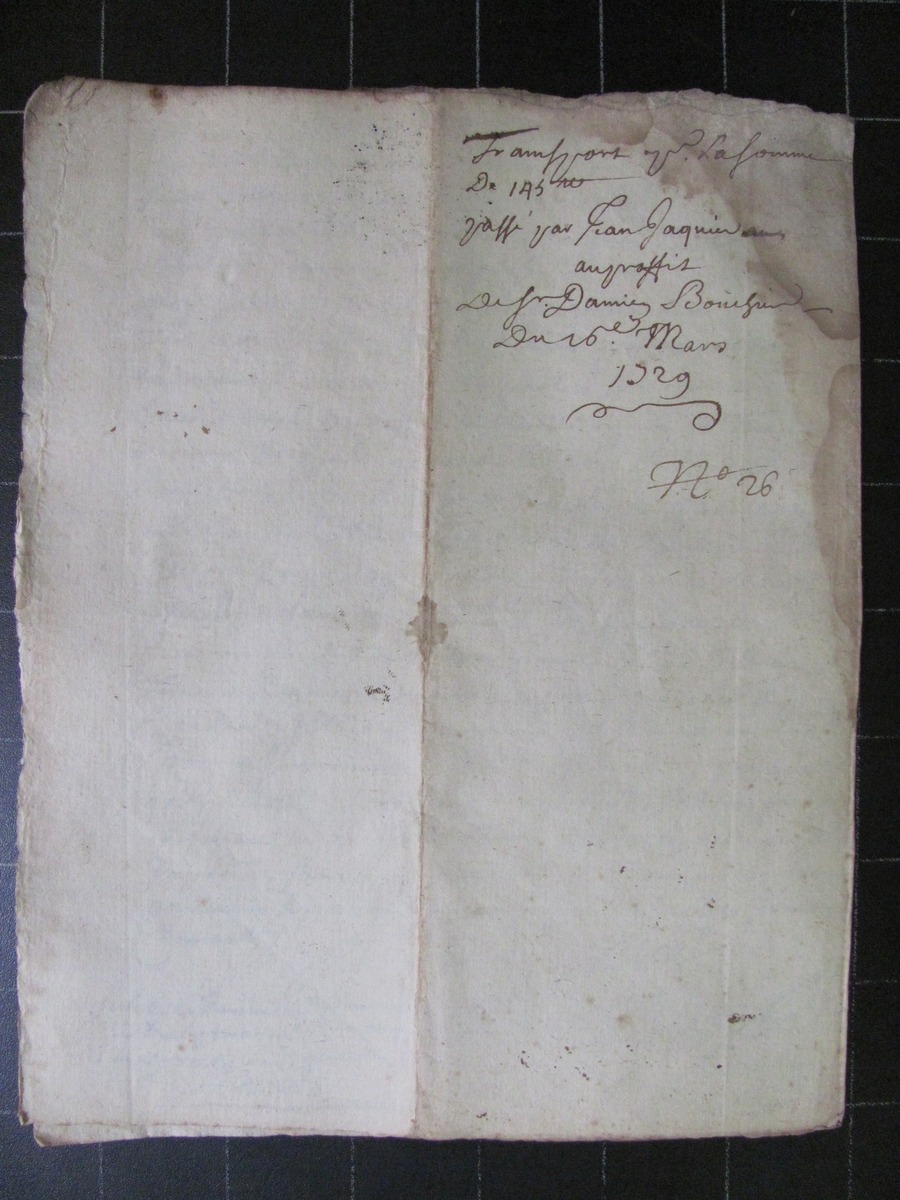 Transport pr. la somme
De 145 ₶
passé par Jean Jaquier
au proffit
de Sr. Damien Bouchier
Du 16e. Mars
1729
No 26